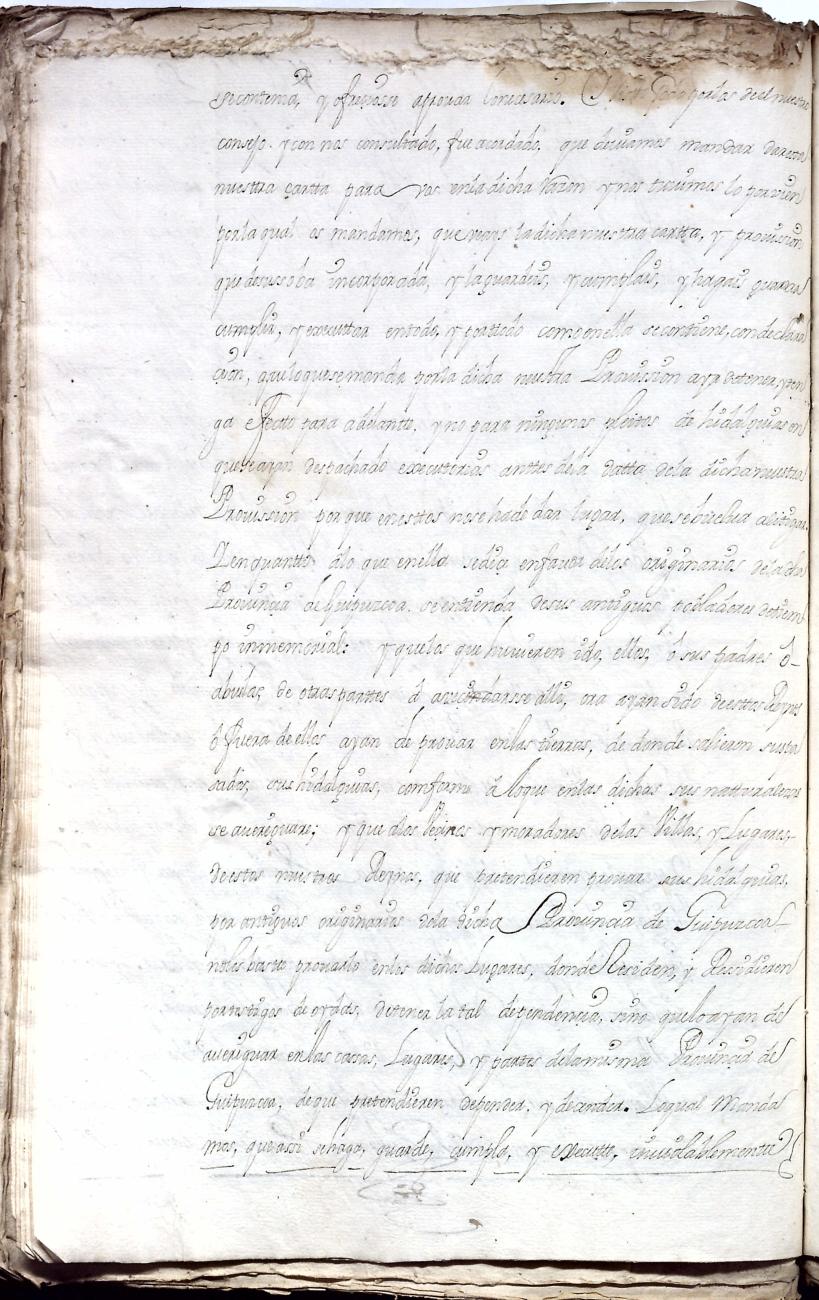 se contenia, y ofreçiosse aprovar lo necesario. Y visto por los del nuestro
consejo. y con nos consultado, fue acordado, que deviamos mandar dar esta
nuestra cartta para vos en la dicha razon y nos tuvimos lo por vien
por la qual os mandamos, que veays la dicha nuestra cartta, y provision
que de suso ba incorporada, y la guardeis, y cumplais, y hagais guardar
cumplir, y executtar en todo, y por todo como en ella se contiene, con declara
çion, que lo que se manda por la dicha nuestra Provission aya de tener, y ten
ga efecto para adelante, y no para ningunos pleitos de hidalguias en
que se ayan despachado executorias anttes de la datta de la dicha nuestra
Provission por que en esttos no se ha de dar lugar, que se buelva a litigar.
Y en quantto á lo que en ella se diçe en favor de los originarios de la dha
Provinçia de Guipuzcoa. se entienda de sus antiguos pobladores de tiem
po inmemorial: y que los que huvieren ido, ellos, ô sus padres ô
abuelos, de otras parttes â aveçindarsse alli, ora ayan sido de esttos Reynos
ô fuera de ellos ayan de provar en las tierras, de donde salieron sus pa
sados, sus hidalguias, comforme â lo que en las dichas sus natturalezas
se averiguare; y que a los Veçinos y moradores de las Villas, y Lugares
de estos nuestros Reynos, que pretendieren provar sus hidalguias,
por antiguos originarios de la dicha Provinçia de Guipuzcoa
no les baste provarlo en los dichos Lugares, donde Residen, y Residieren
por testigos de oydas, de tener la tal dependençia, sino que lo ayan de
averiguar en las cassas, Lugares, y partes de la misma Provinçia de
Guipuzcoa, de que pretendieren depender, y deçender. Lo qual Manda
mos, que assi se haga, guarde, cumpla, y executte, inviolablemente